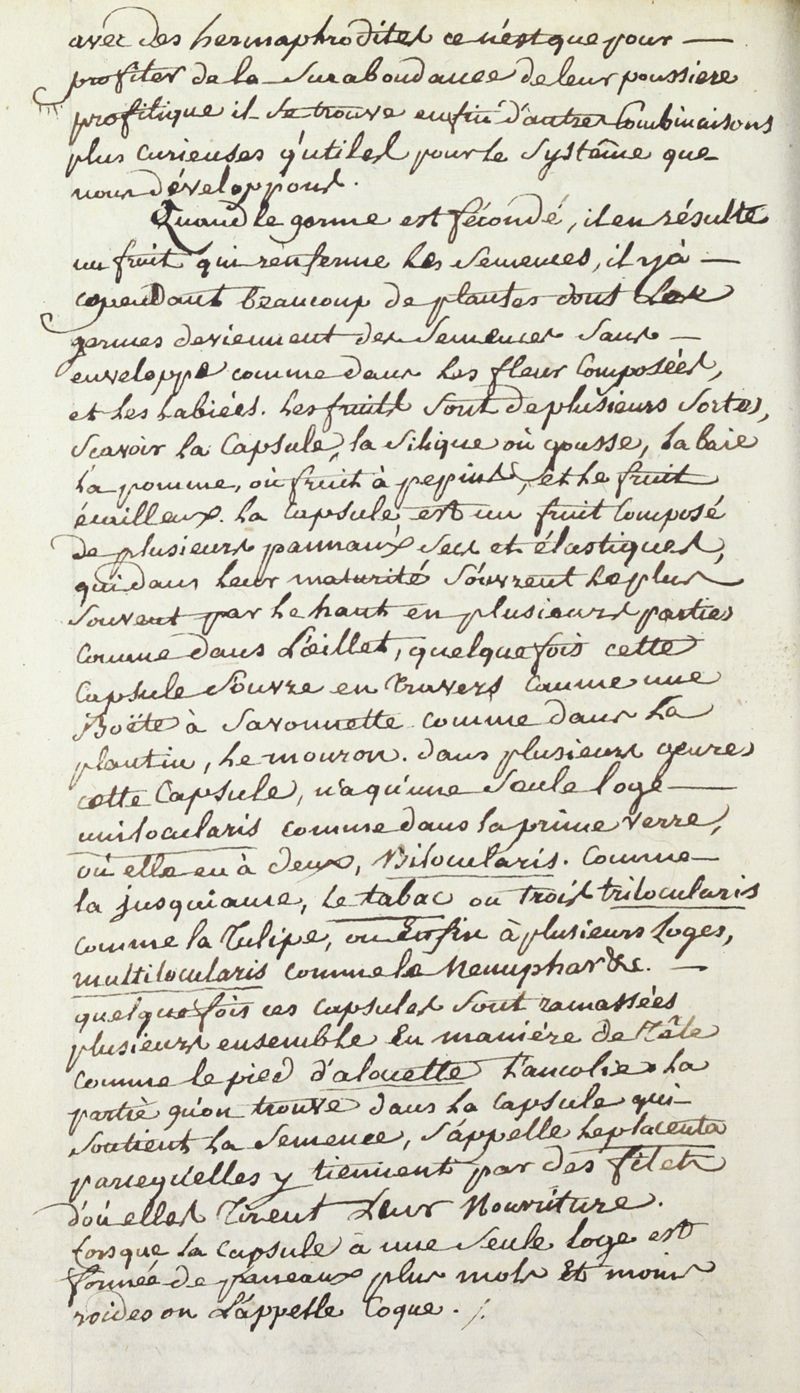 avec des hermaphrodites ce n'est que pour —
profiter de la surabondance de leur poussiere
profilique il se trouve enfin d'autres Combinaisons
plus curieuses q'utiles pour le systême que
nous développons.
Quand le germe est fécondé, il en résulte
un fruit qui renferme les semences, il y à —
cependant beaucoup de plantes dont les
germes deviennent des semences sans —
enveloppe comme dans les fleur Composées,
et les Labiées. Les fruits sont de plusieurs sortes,
scavoir la Capsule, la silique où gousse, la baie
la pomme, où fruit à pepins, et le fruit
écailleux. la Capsule, est un fruit Composé
de plusieurs pannaux secs et élastiques,
qui dans leur maturité s'ouvrent le plus
souvent par le haut en plusieurs parties
Comme dans l'œillet, quelque fois cette
Capsule s'ouvre en travers comme une
Boëte à Savonnette comme dans la
plantin, le mouron. dans plusieurs genres
cette Capsule, n'a qu'une seule loge —
unilocularis comme dans la prime verre,
où elle en à deux, Bilocularis. Comme —
la jusquiame, le tabac ou trois trilocularis
comme la Tulipe, ou Enfin à plusieurs Loges,
multilocularis comme le Nenuphar &c. —
quelque fois ces capsules sont ramassées
plusieurs ensemble En maniére de Tête
comme le pied d'alouette l'ancolie la
partie qu'on trouve dans la capsule qui
soutient la semence, s'appelle le placenta
parcequ'elles y tiennent par des filets
d'où elles Tirent Leur Nourriture.
Lorsque la capsule à une seule loge est
formée de paneaux plus mols Et moins
roides on l'appelle Coque. /.